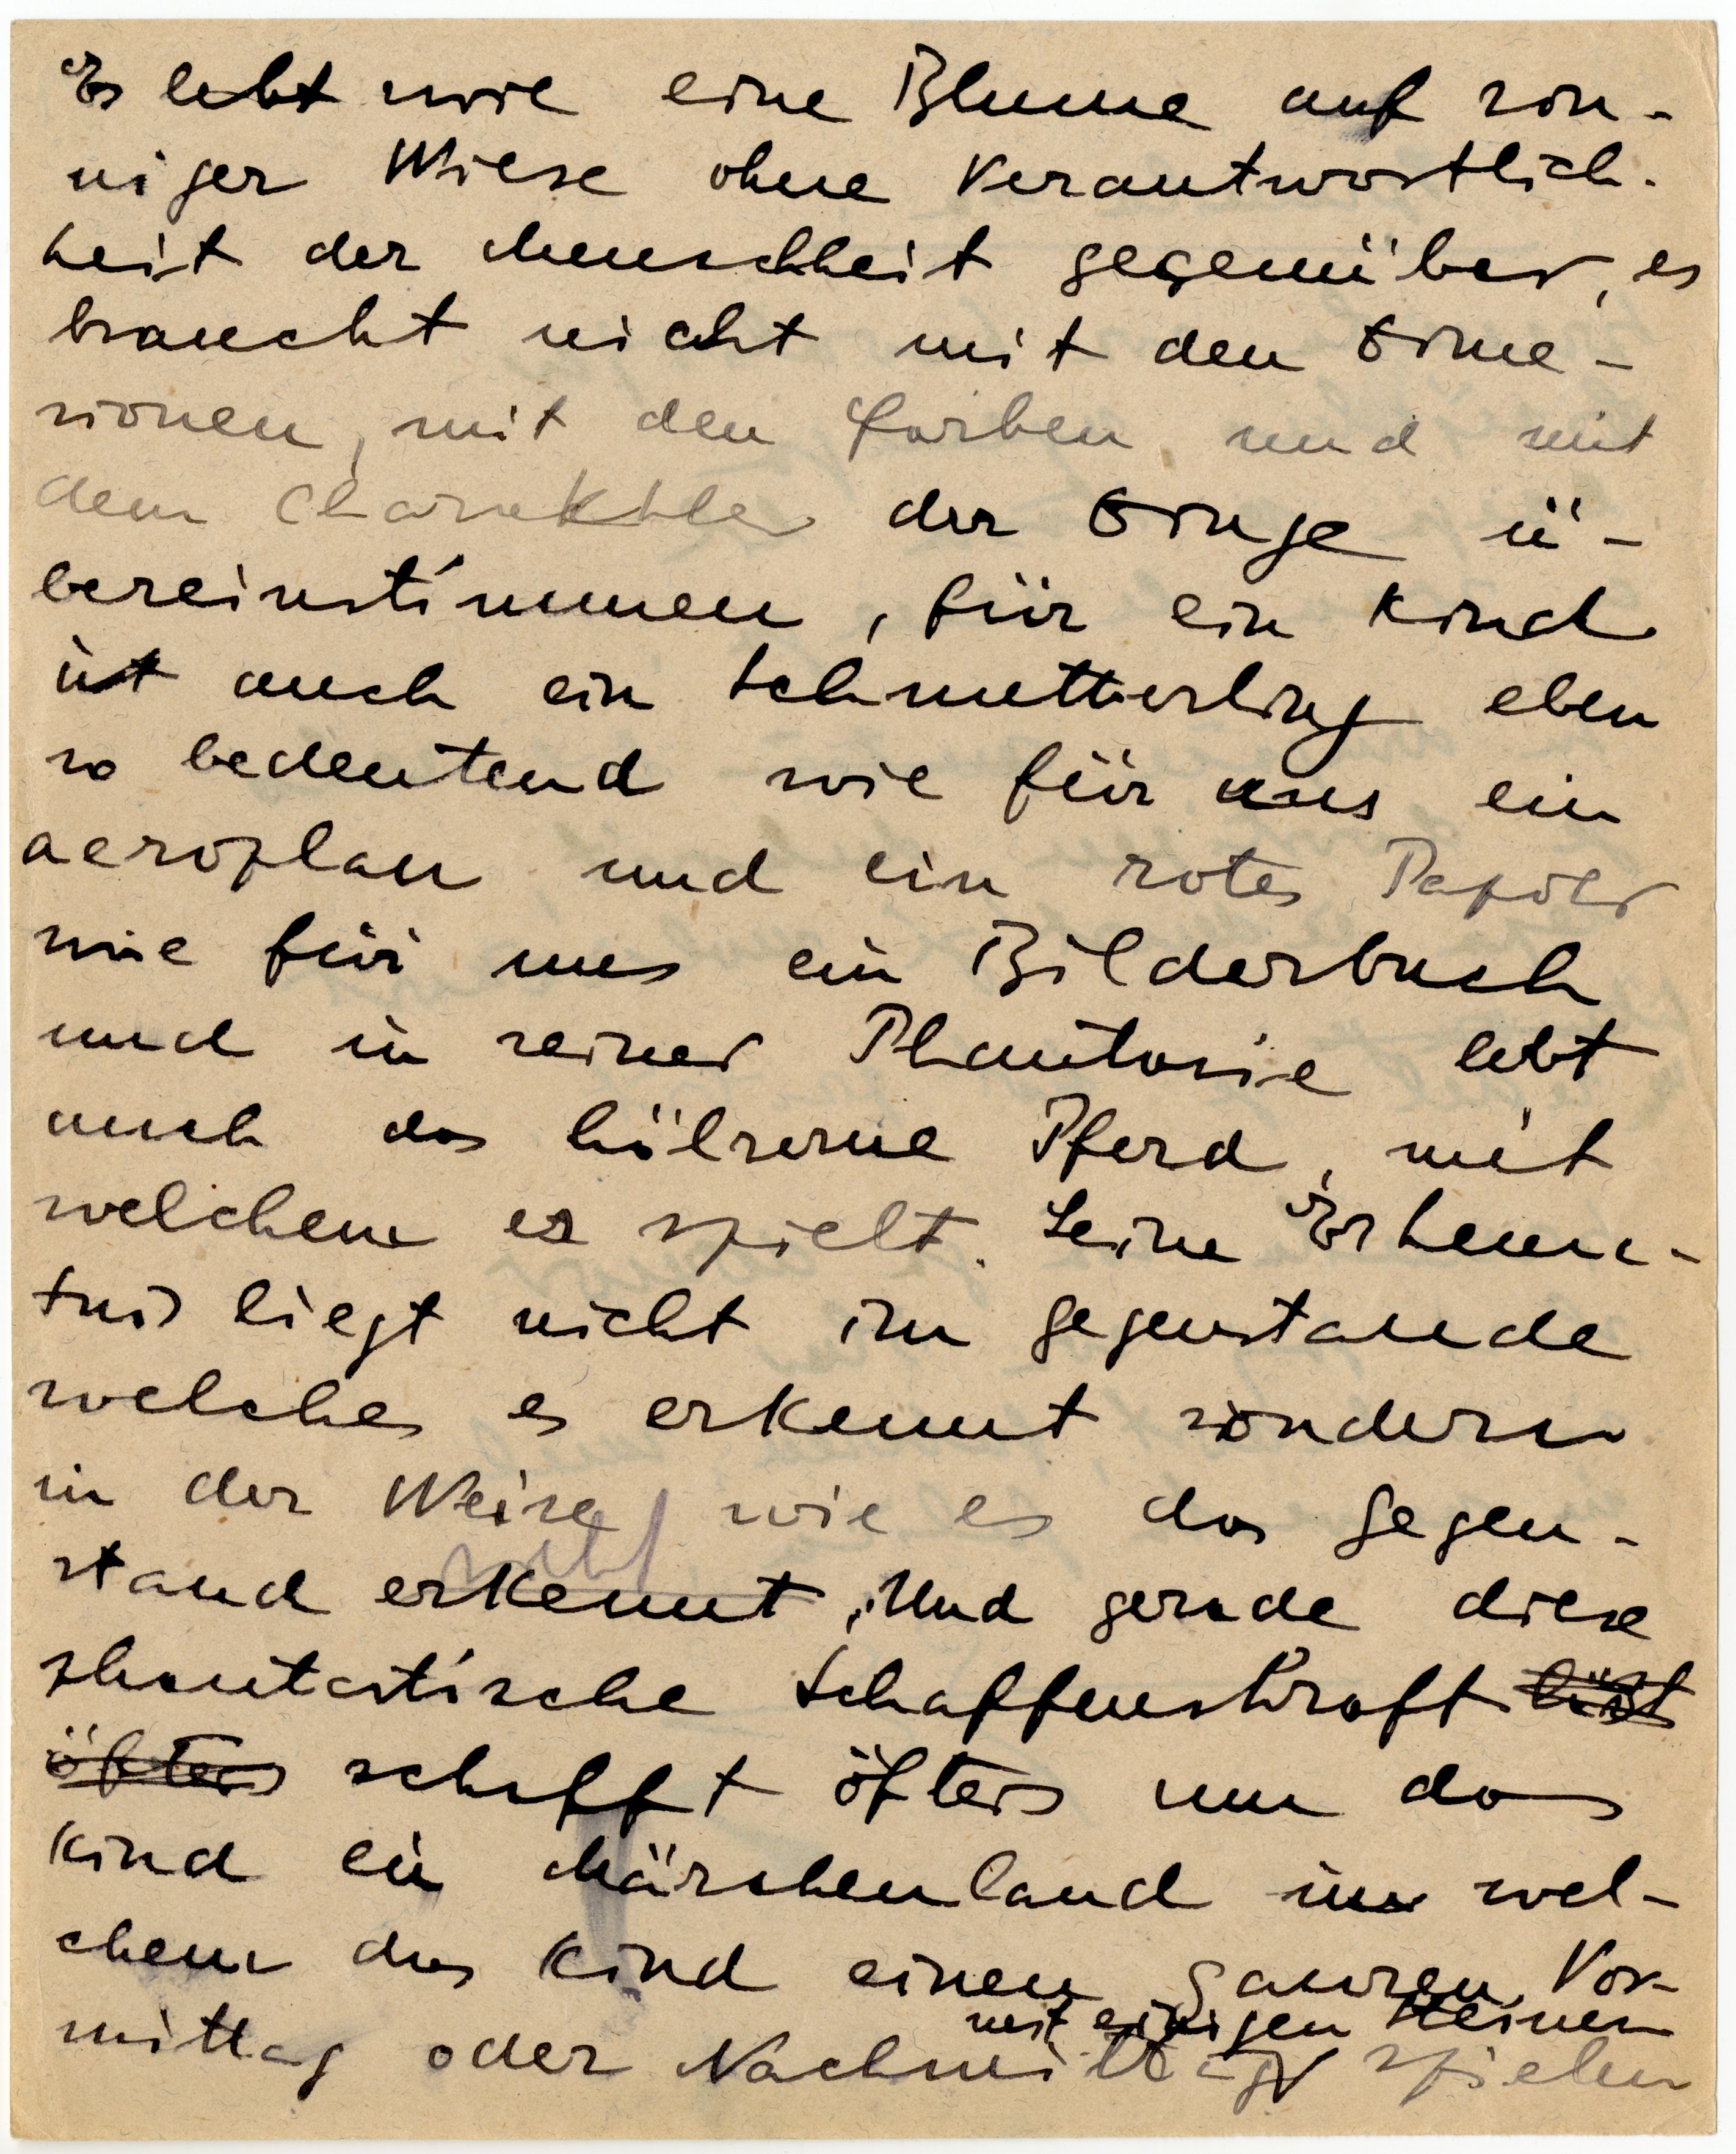 Es lebt wie eine Blume auf son-
niger Wiese ohne Verantwortlich-
keit der Menschheit gegenüber, es
braucht nicht mit den Dime-
sionen, mit den Farben und mit
dem Charakter der Dinge ü-
bereinstimmen, für ein Kind
ist auch ein Schmetterling eben
so bedeutend wie für uns ein
aeroplan und ein rotes Papier
wie für uns ein Bilderbuch
und in seiner Phantasie lebt
auch das hölzerne Pferd, mit
welchem es spielt. Seine Erkenn-
tnis liegt nicht im gegenstande
welches es erkennt sondern
in der Weise wie es das gegen-
stand erkennt. Und gerade diese
phantastische Schaffenskraft läßt
öfters schafft öfters um das
Kind ein Märchenland in wel-
chem das Kind einen ganzen Vor-
mit einigen Steinen
mittag oder Nachmittag spielen